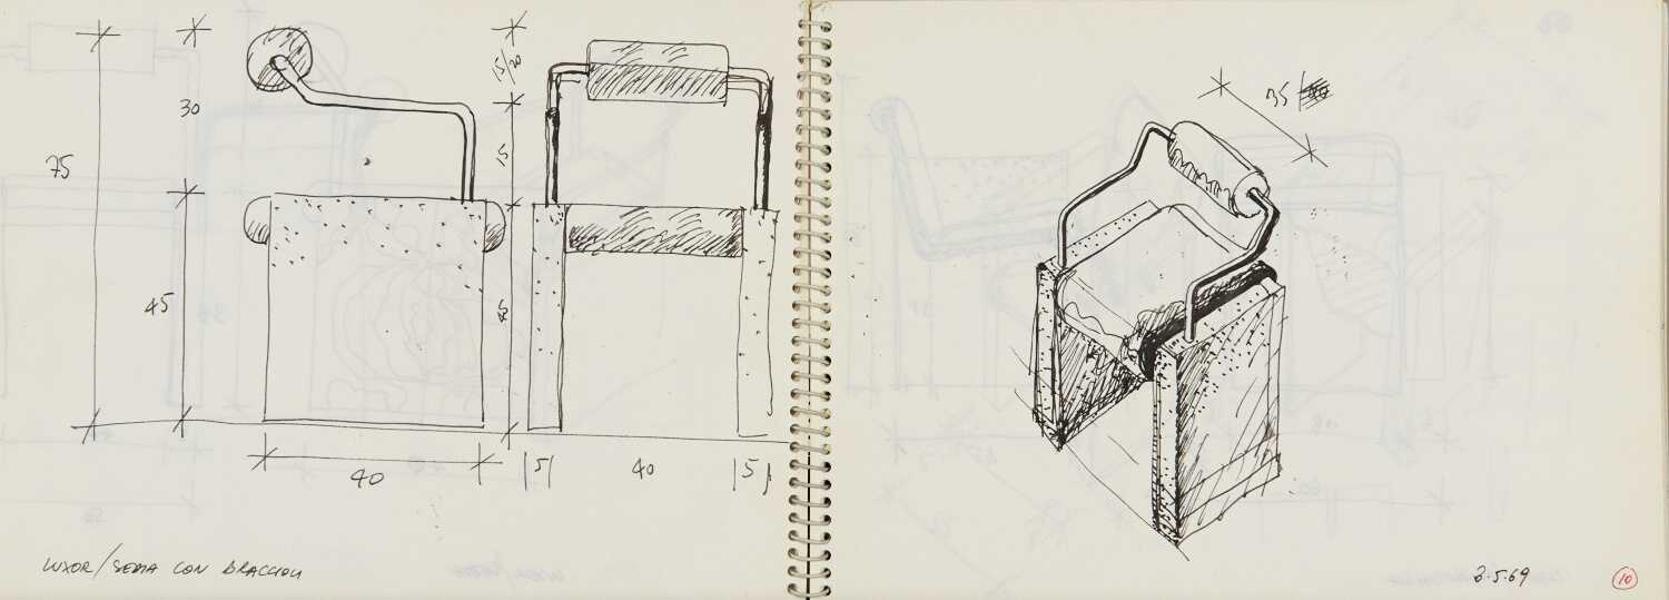 75
30
45
40
15/20
15
45
5
40
5
LUXOR/SEDIA CON BRACCIOLI
35
3.5.69
10